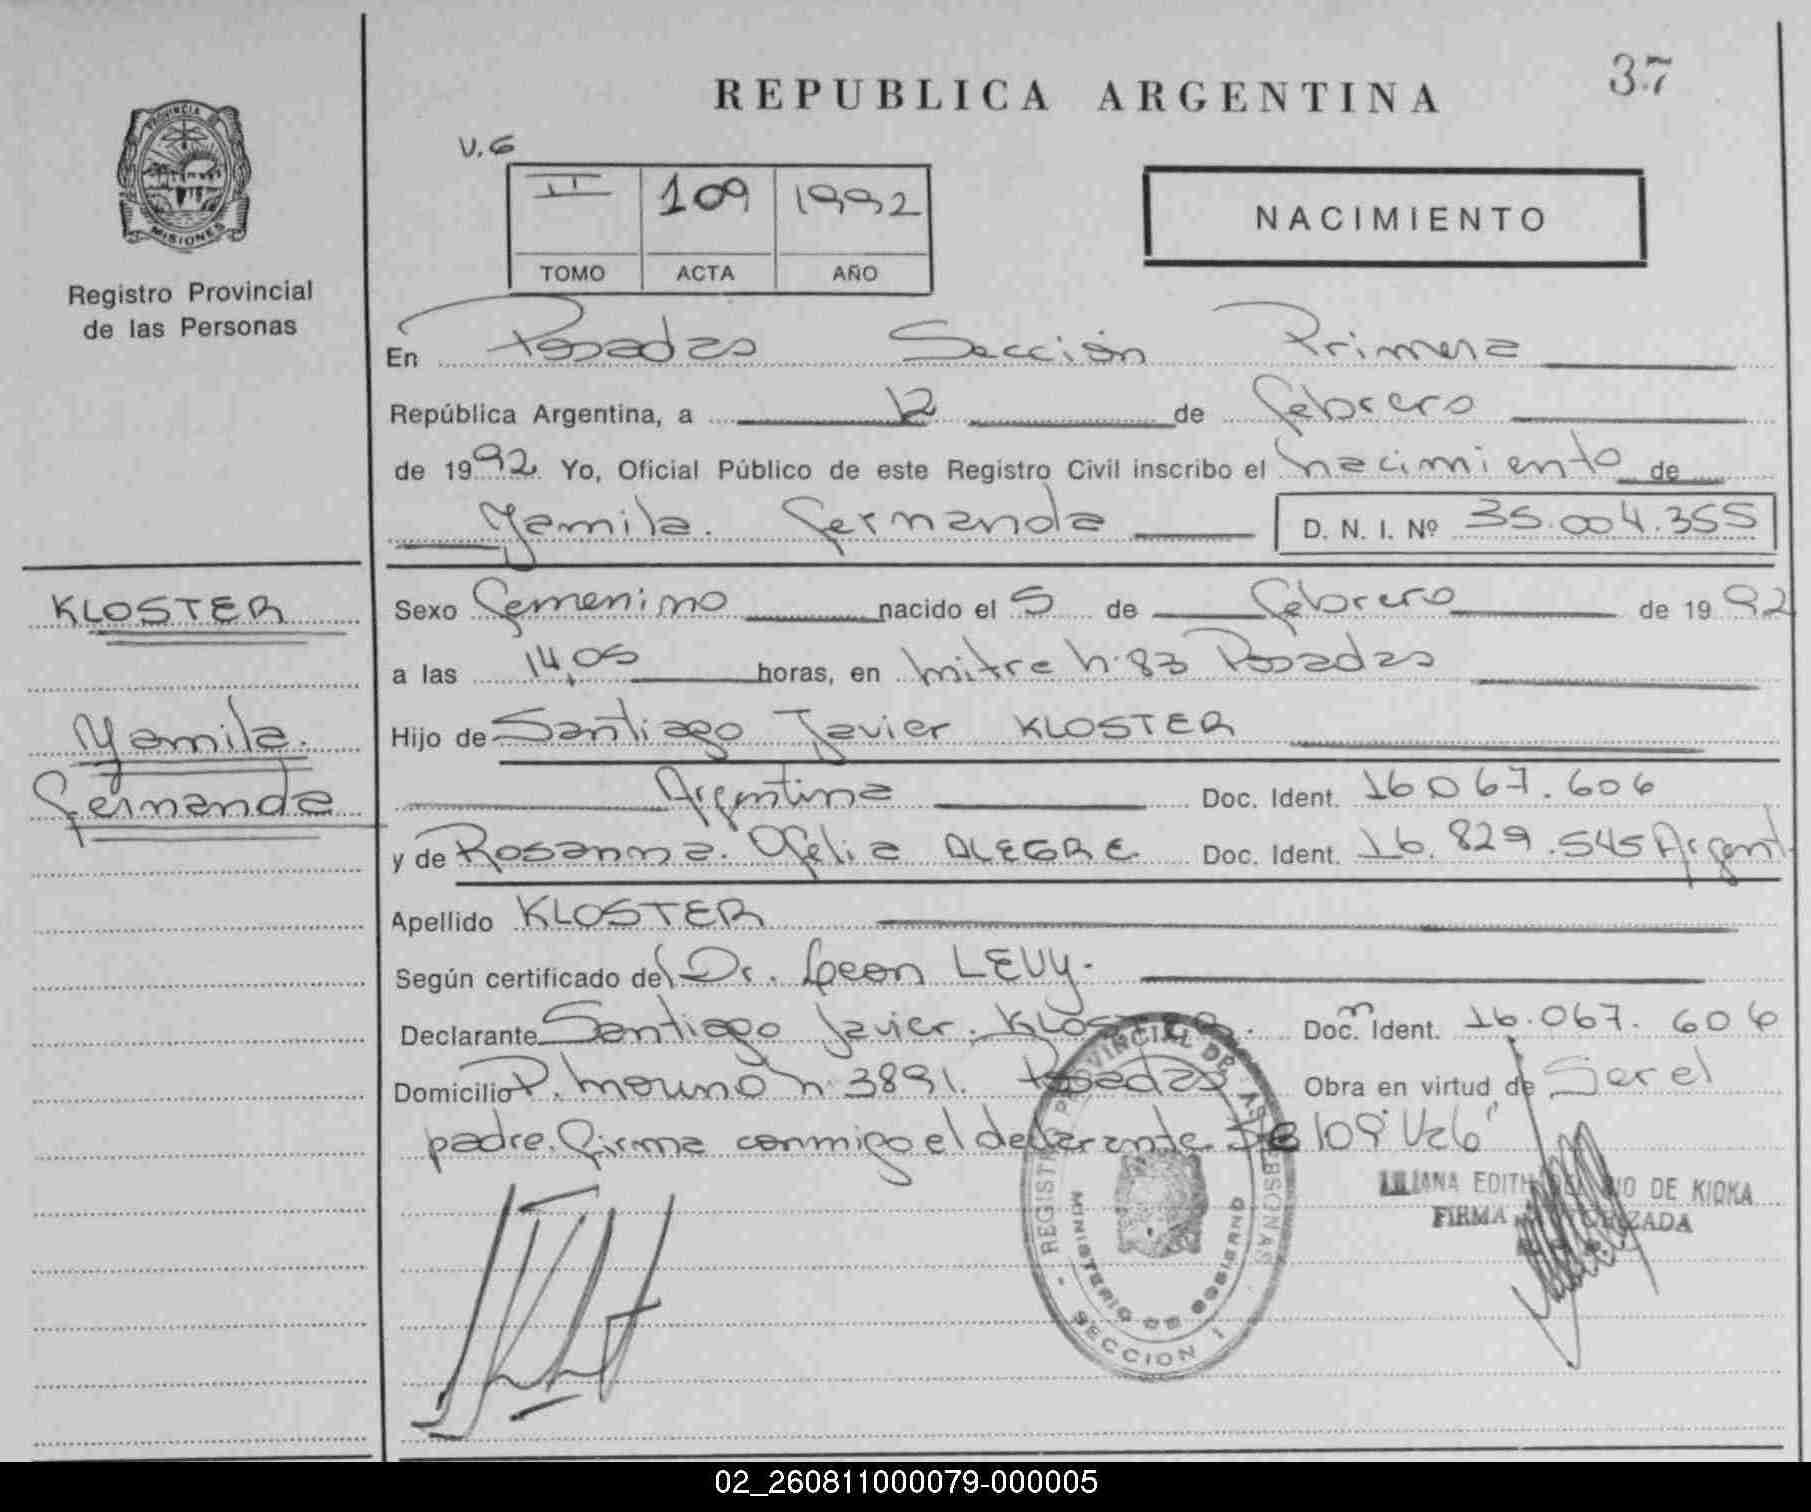 37
REPUBLICA ARGENTINA
V. 6
PROVINCIA DE
MISIONES
II 109 1992
TOMO ACTA AÑO
NACIMIENTO
Registro Provincial
de las Personas
En Posadas Sección Primera
República Argentina, a 12 de febrero
de 1992. Yo, Oficial Público de este Registro Civil inscribo el nacimiento de
Yamila. Fernanda D. N. I. Nº 35.004.355
KLOSTER
Yamila.
Fernanda
Sexo femenino nacido el 5 de febrero de 1992
a las 14,05 horas, en mitre n. 83 Posadas
Hijo de Santiago Javier KLOSTER
Argentina Doc. Ident. 16067.606
y de Rosanna. Ofelia ALEGRE. Doc. Ident. 16.829.545 Argent.
Apellido KLOSTER
Según certificado del Dr. Leon LEVY.
Declarante Santiago Javier. KLOSTER. Doc. Ident. 16.067.606
Domicilio P. moreno n. 3891. Posadas Obra en virtud de Ser el
padre. firma conmigo el declarante. 109 V. 6
LILIANA EDITH DE KIDKA
FIRMA AUTORIZADA
REGISTRO PROVINCIAL DE LAS PERSONAS
MINISTERIO DE GOBIERNO
SECCION 1
02_260811000079-000005